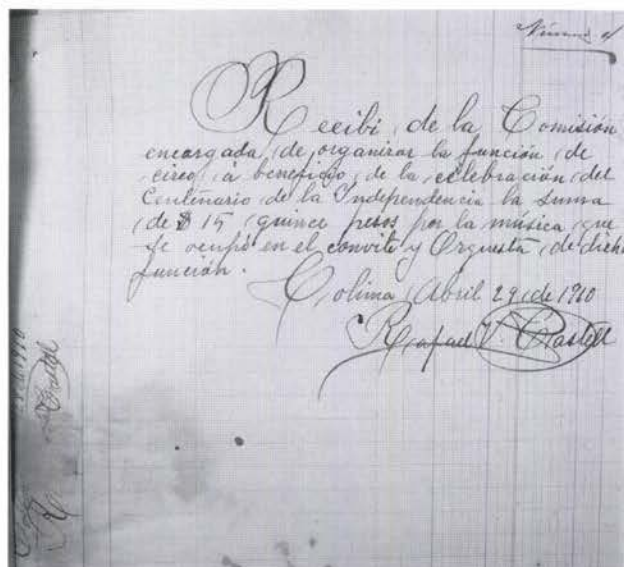 Recibí de la Comisión
encargada de organizar la función de
circo á beneficio de la celebración del
Centenario de la Independencia la suma
de $15 quince pesos por la música que
se ocupó en el convite y Orquesta de dicha
función.
Colima Abril 29 de 1910
Rafael V.
1910